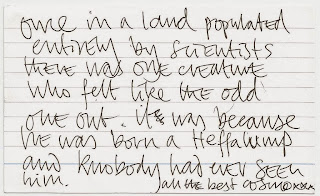 once in a land populated
entirely by scientists
there was one creature
who felt like the odd
one out. it was because
he was born a Heffalump
and knobody had ever seen
him.
all the best cosmo xxx